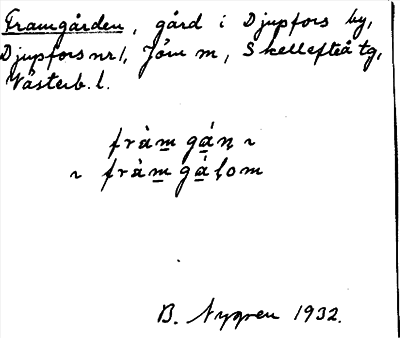 Framgården, gård i Djupfors by,
Djupfors nr 1, Jörn sn, Skellefteå tg,
Västerb. l.
fràm gán ~
~ fràm gálom
B. Nygren 1932.